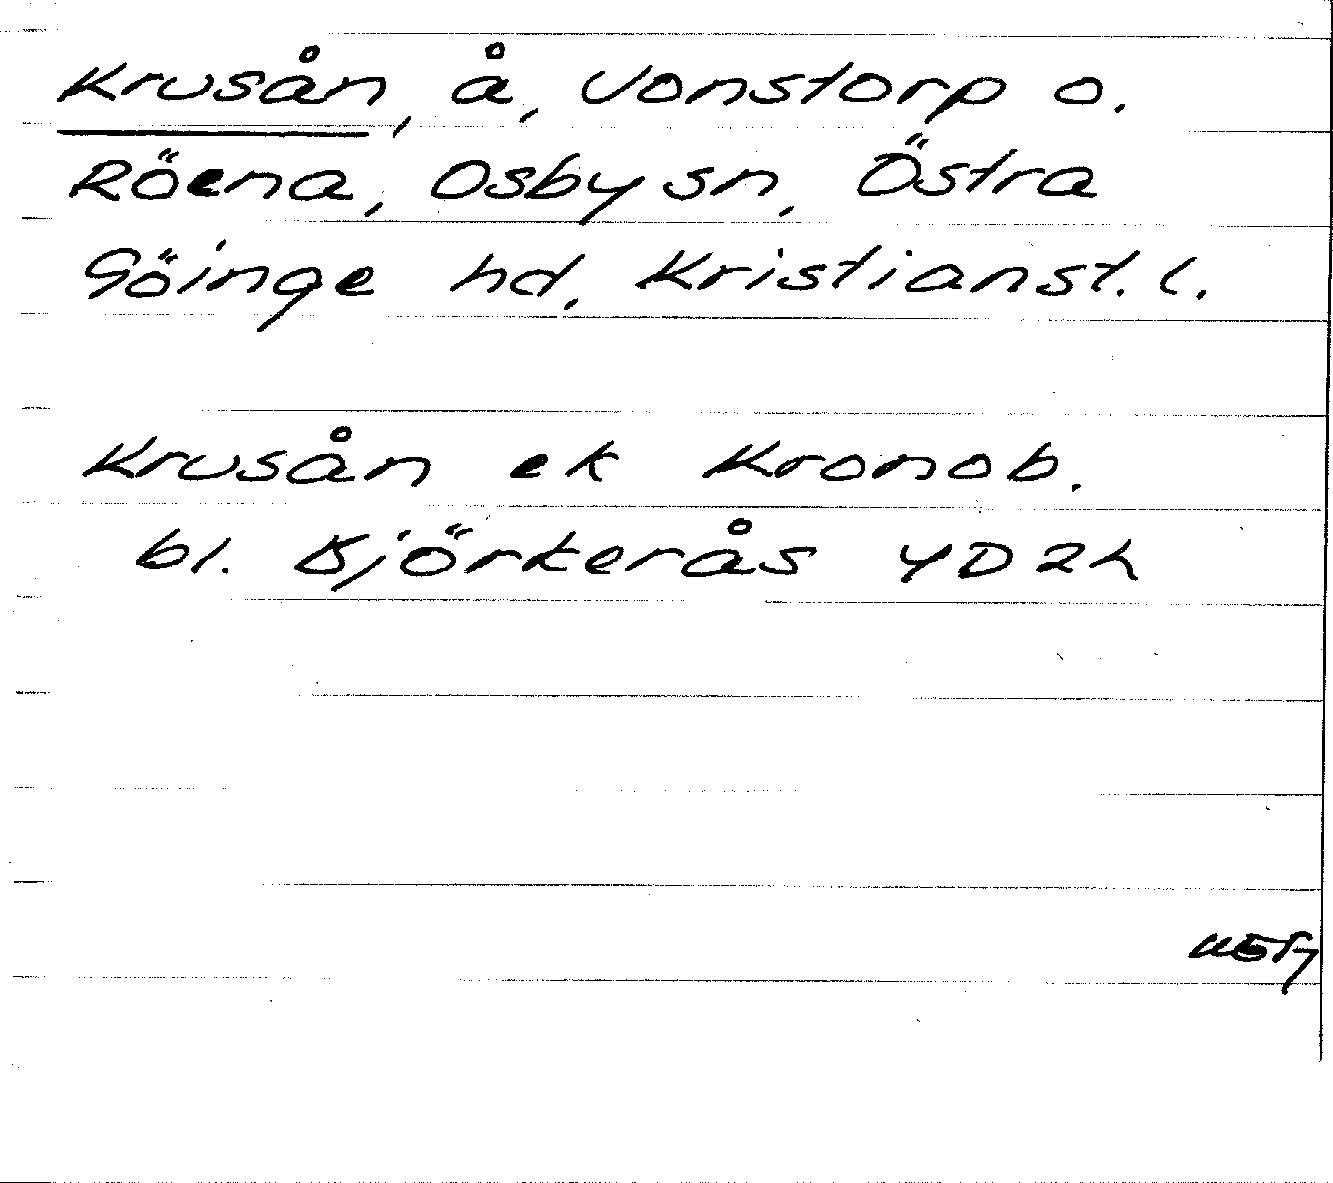 Krusån, å, Vonstorp o.
Röena, Osby sn, Östra
Göinge hd, Kristianst. l.
Krusån ek Kronob.
bl. Björkerås 4D2h